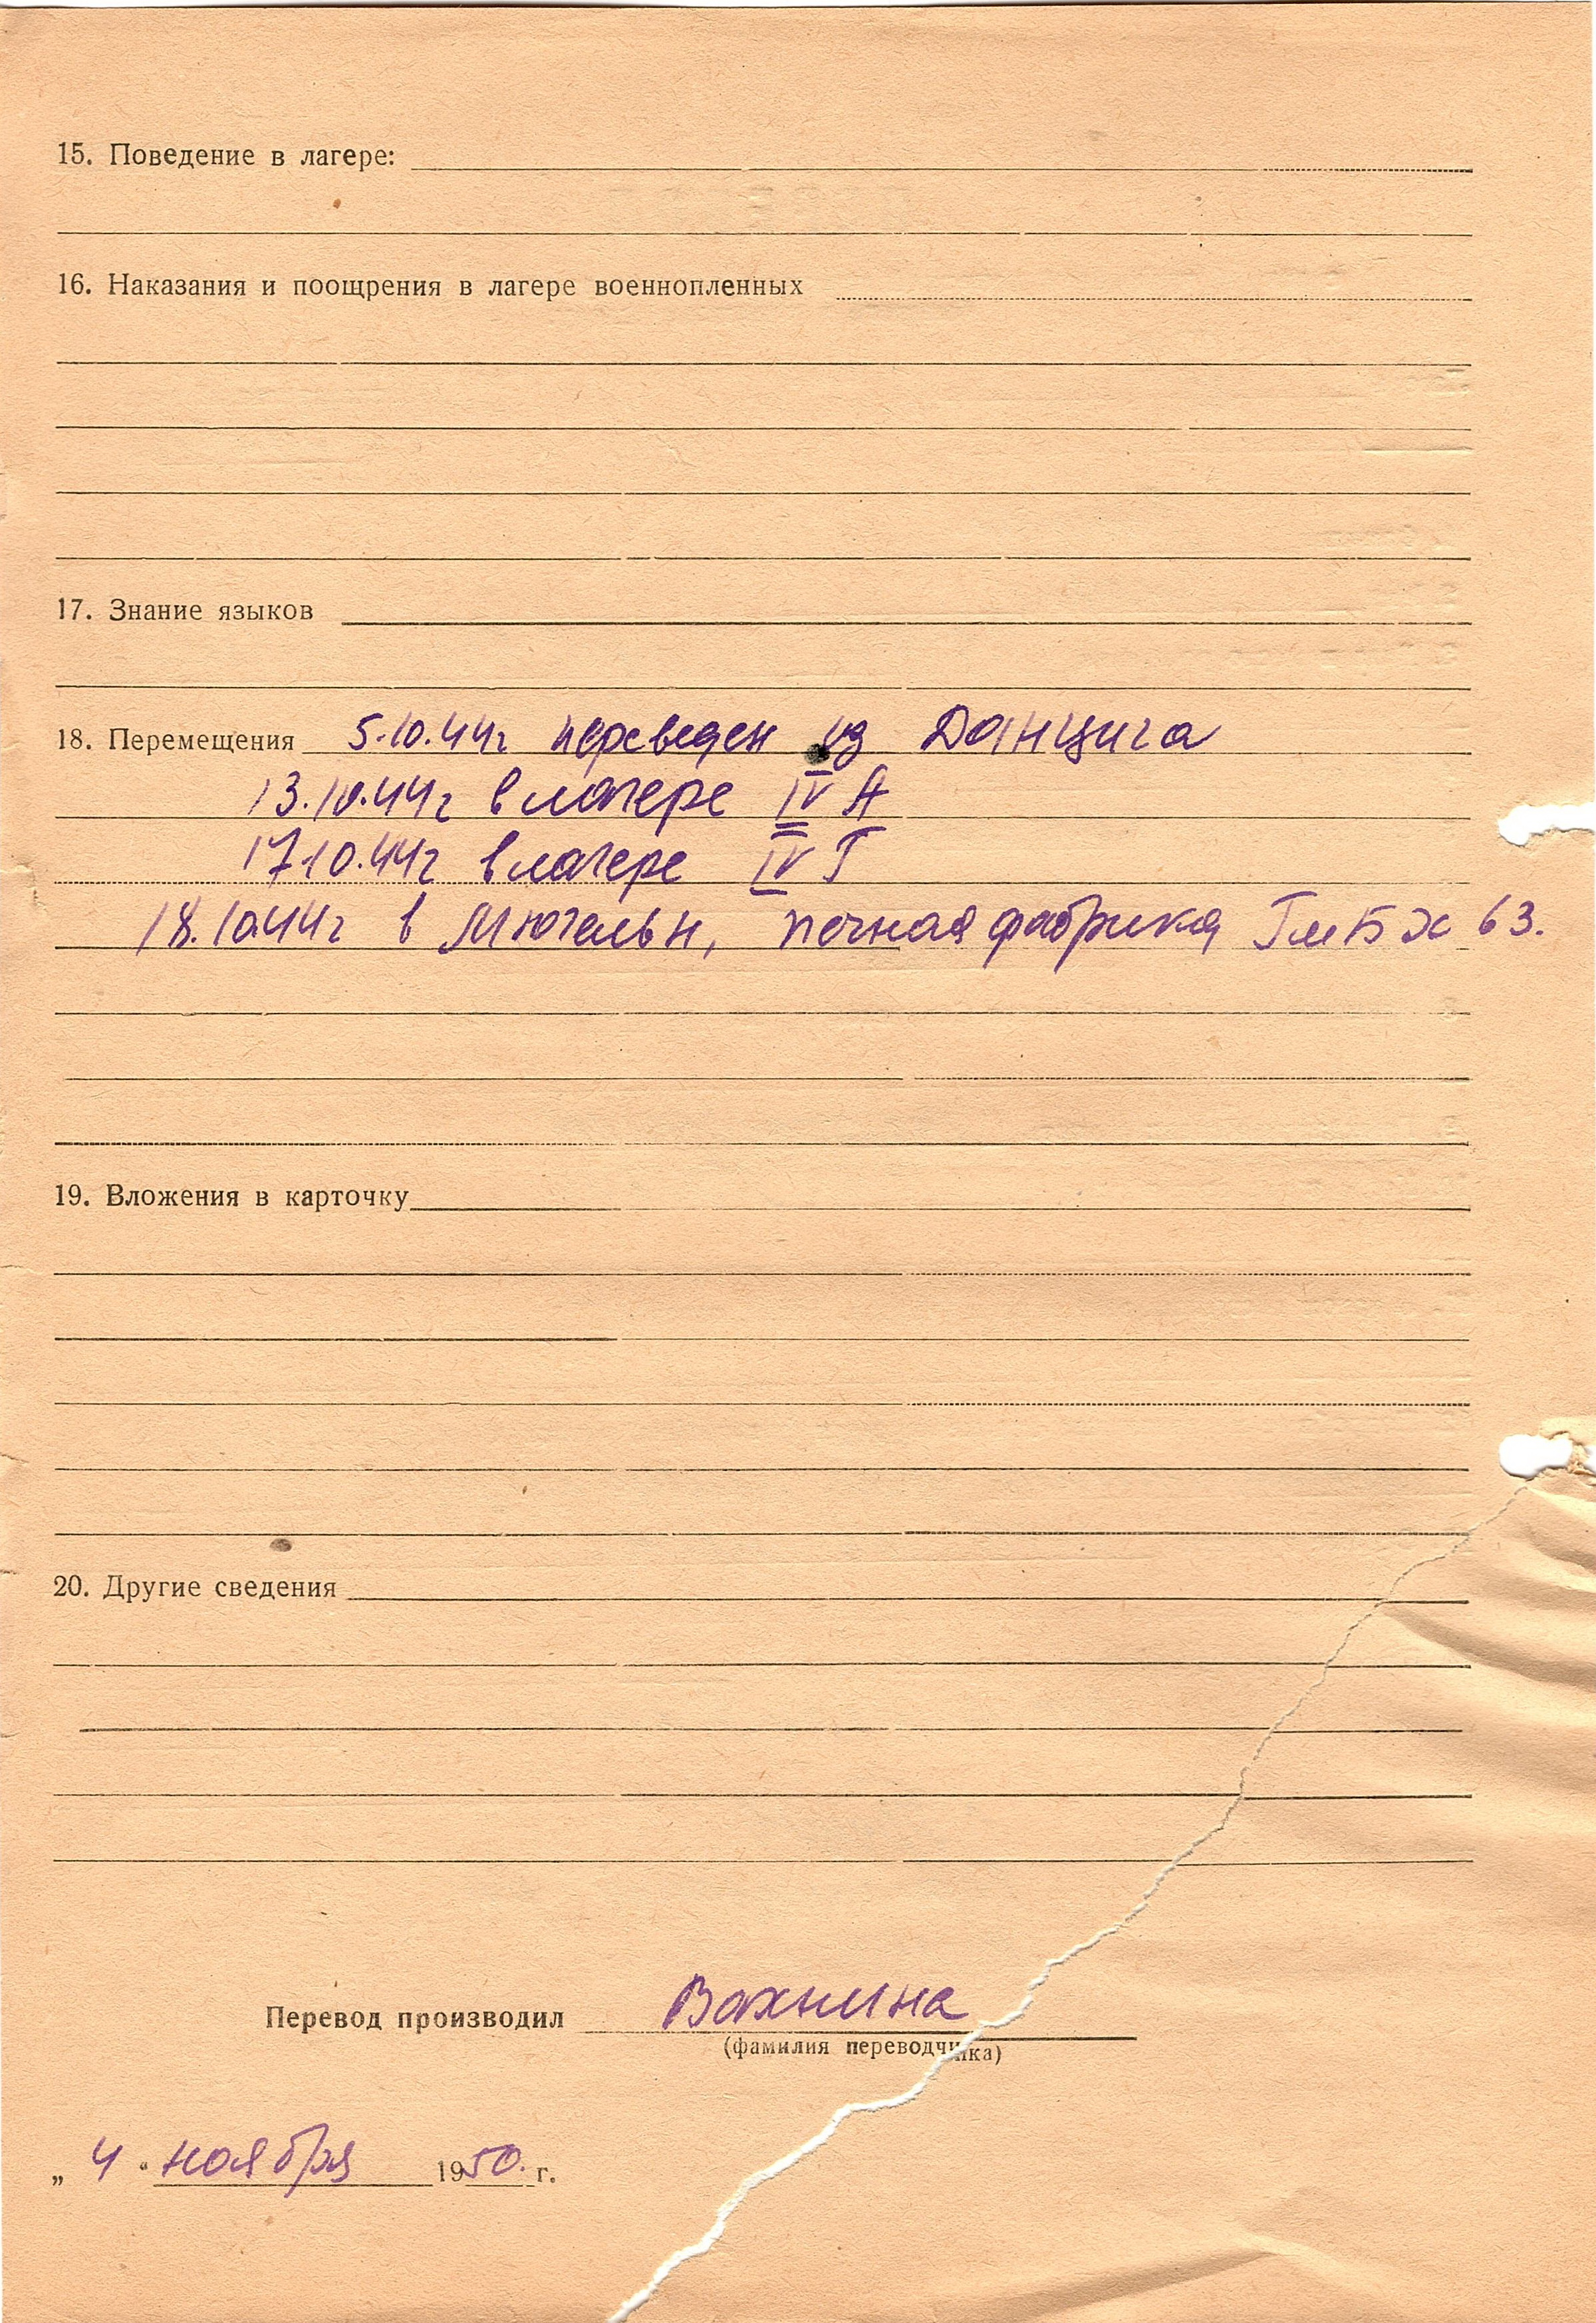 15. Поведение в лагере:
16. Наказания и поощрения в лагере военнопленных
17. Знание языков
18. Перемещения 5.10.44г переведен из Данцига
13.10.44г в лагере IV А
17.10.44г в лагере IV Г
18.10.44г в Мюгельн, печная фабрика ГмБХ 63.
19. Вложения в карточку
20. Другие сведения
Перевод производил Вахнина
(фамилия переводчика)
„ 4 “ ноября 1950. г.